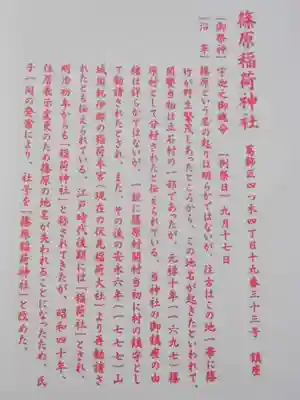 篠原稲荷神社
葛飾区四つ木四丁目十九番三十三号　鎮座
［御祭神］宇迦之御魂命　［例祭日］九月十七日
［沿　革］篠原という名の起りは明らかではないが、往古はこの地一帯に篠
竹が野生繁茂しあったところから、この地名が起きたといわれて、
開発当初は立石村の一部であったが、元禄十年（一六九七）篠
原村として分村されたと伝えられている。当神社の御鎮座の由
緒は詳らかではないが、一説に篠原村開村当初に村の鎮守とし
て勧請されたとされ、また、その後の安永六年（一七七七）山
城国紀伊郡の稲荷本宮（現在の伏見稲荷大社）より再勧請さ
れたとも伝えられている。江戸時代後期には「稲荷社」とされ、
明治初年からも「稲荷神社」と称されてきたが、昭和四十年、
住居表示変更のため篠原の地名が失われることになったため、氏
子一同の発意により、社号を「篠原稲荷神社」と改めた。